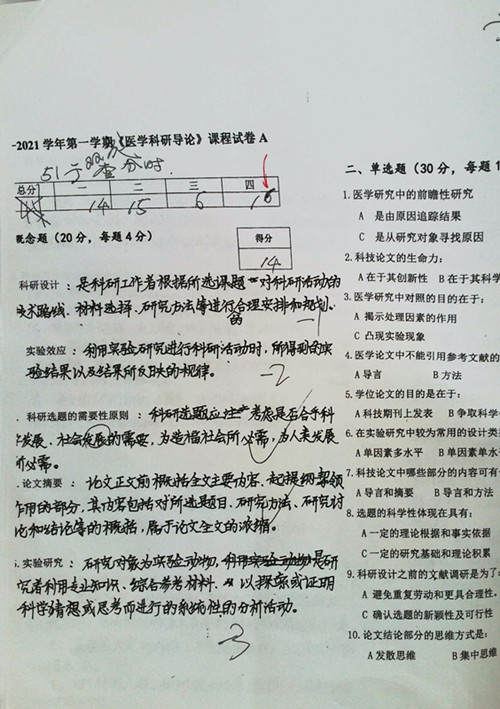 -2021 学年第一学期《医学科研导论》课程试卷 A
总分 一 二 三 四
14 15 6
概念题（20 分，每题 4 分）
得分
14
科研设计：是科研工作者根据所选课题对科研活动的
技术路线、材料选择、研究方法等进行合理安排和规划.
的
-1
实验效应：利用实验研究进行科研活动时，所得到的实
验结果以及结果所反映的规律。
-2
科研选题的需要性原则：科研选题应注考虑是否合乎科
学发展、社会发展的需要，为造福社会所必需，为人类发展
所必需。
论文摘要：论文正文前概括全文主要内容、起提纲挈领
作用的部分，其内容包括对所选题目、研究方法、研究讨
论和结论等的概括，属于论文全文的浓缩。
实验研究：研究对象为实验动物，利用实验动物是研
究者利用专业知识、综合参考材料、以探索或证明
科学猜想或思考而进行的系统性的分析活动。
-3
二、单选题（30 分，每题 1
1.医学研究中的前瞻性研究
A 是由原因追踪结果
C 是从研究对象寻找原因
2.科技论文的生命力：
A 在于其创新性 B 在于其科学
3.医学研究中对照的目的在于：
A 揭示处理因素的作用
C 凸现实验现象
4.医学论文中不能引用参考文献的
A 导言 B 方法
5.学位论文的目的是在于：
A 科技期刊上发表 B 争取科学
6.在实验研究中较为常用的设计类
A 单因素多水平 B 单因素单水
7.科技论文中哪些部分的内容可有
A 导言和摘要 B 导言和方法
8.选题的科学性体现在具有：
A 一定的理论根据和事实依据
C 一定的研究基础和理论积累
9.科研设计之前的文献调研是为了：
A 避免重复劳动和更具合理性。
C 确认选题的新颖性及可行性
10.论文结论部分的思维方式是：
A 发散思维 B 集中思维